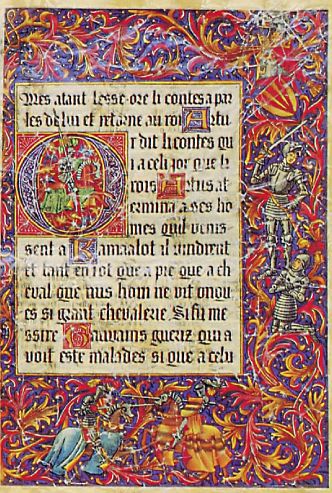 Mes atant lesse ore li contes a par
les de lui et retorne au roi Artu
Or dit li contes qu
i a celi jor que li
rois Artus at
ermina a ses ho
mes quil venis
sent a Kamaalot il vindrent
et tant en i ot que a pie que a ch
eval que nus hom ne vit onqu
es si grant chevalerie Si fu me
ssire Gauvains gueriz qui a
voit este malades si que a celu